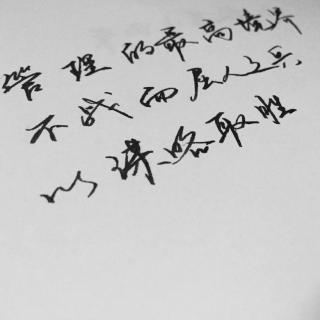 管理的最高境界
不战而屈人之兵
以谋略取胜